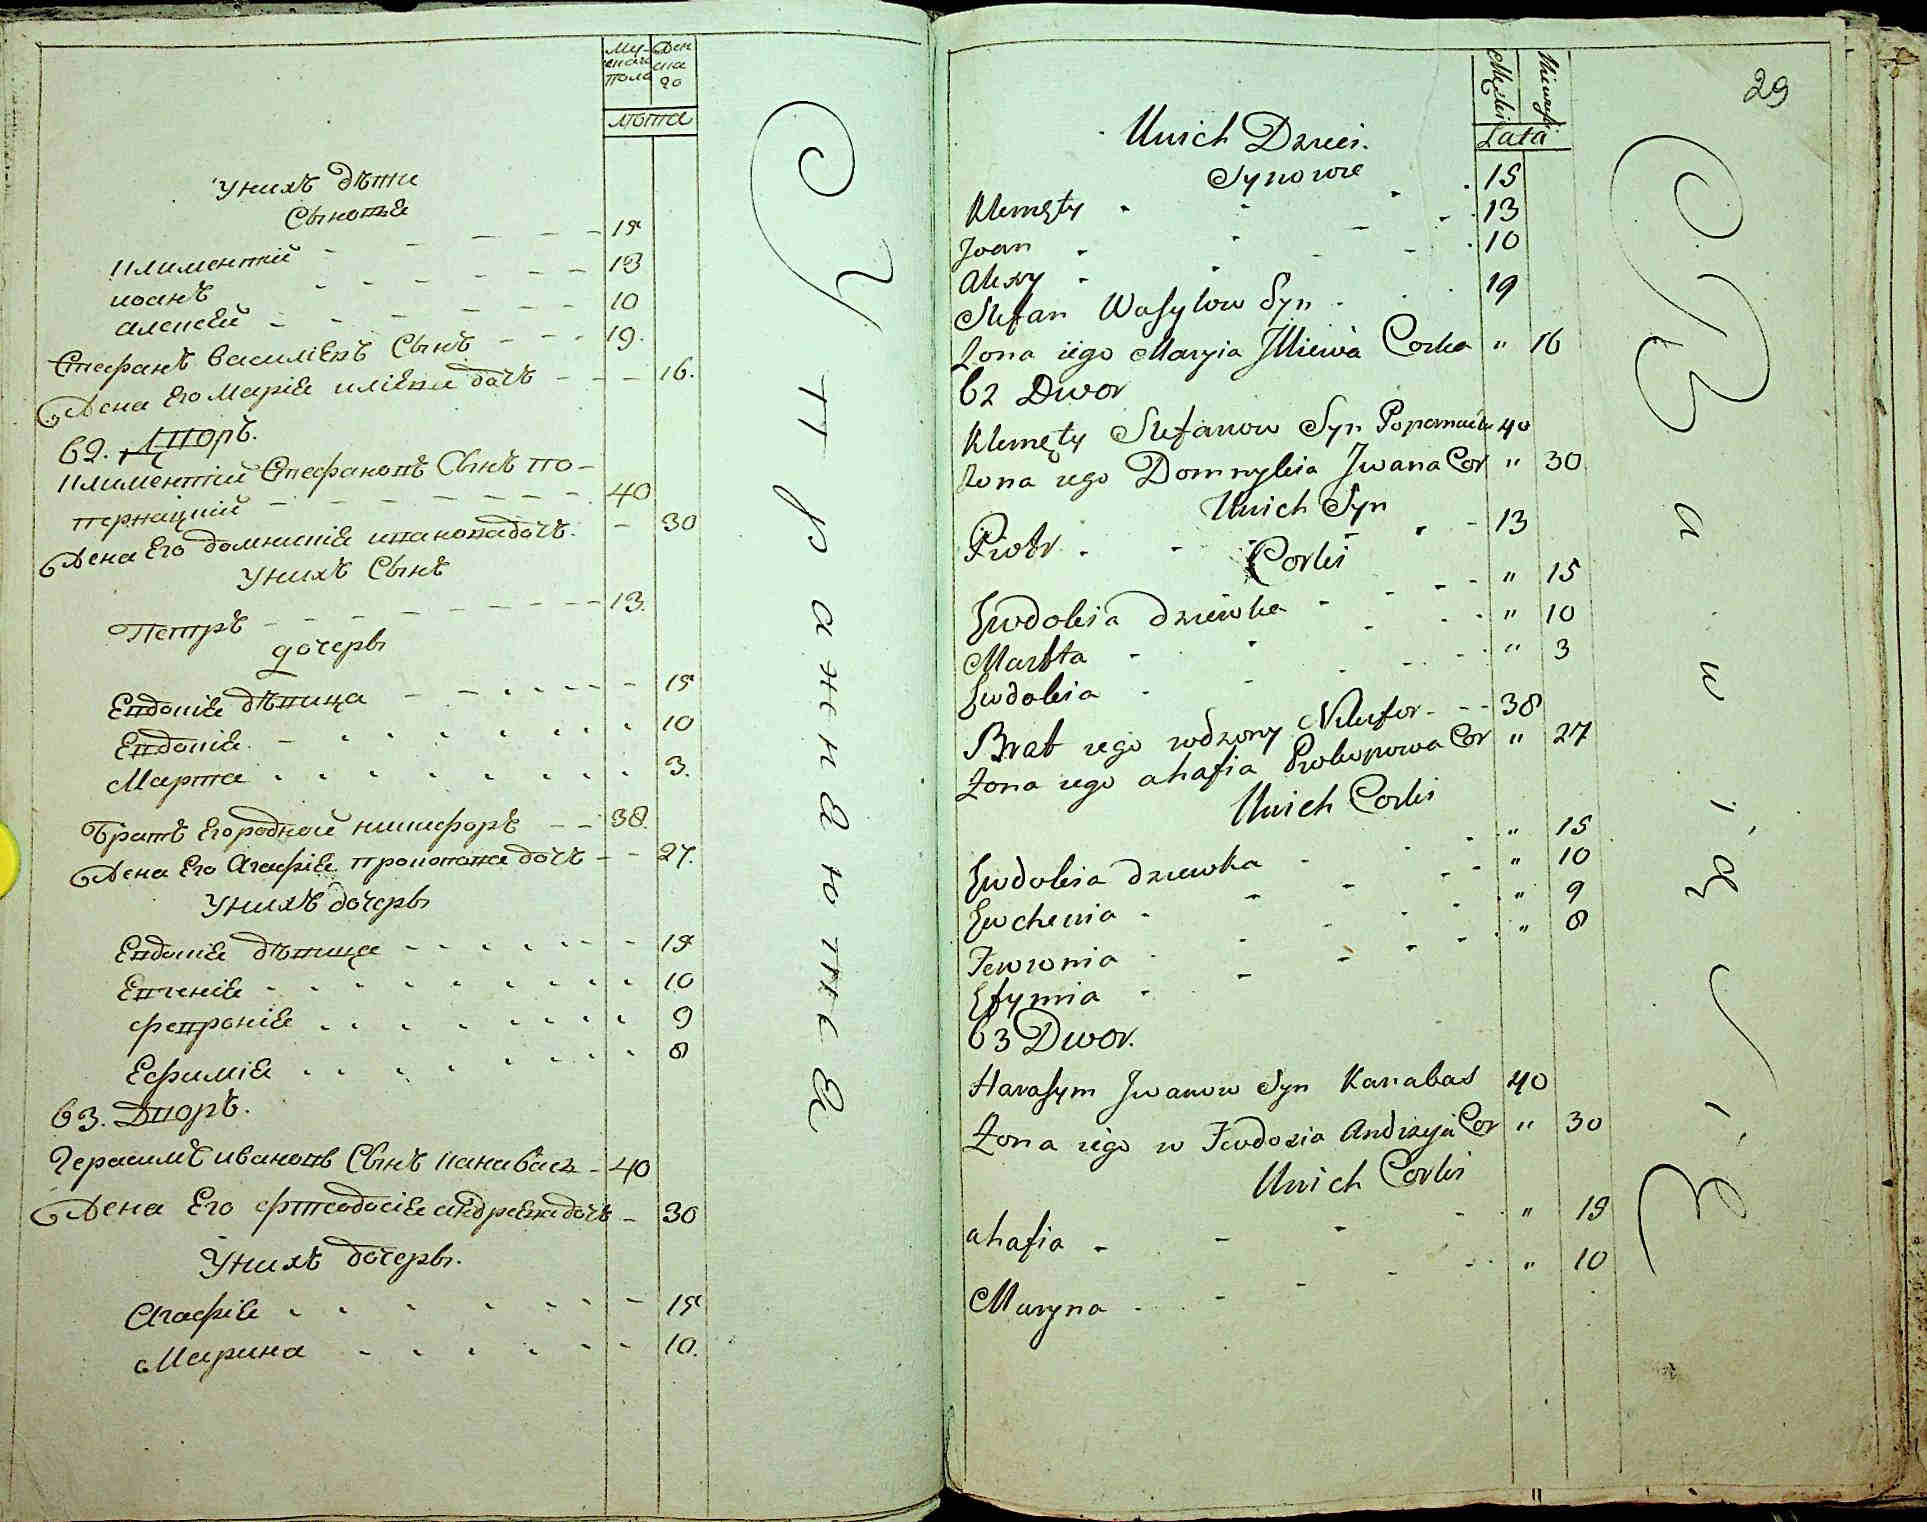 Му-
жеска
пола
Жен
ска
го
Лѣта
У нихъ дѣти
Сыновья
Климентий - - - - 15
Иоанъ - - - - 13
Алексей - - - - 10
Стефанъ Василіевъ Сынъ - - - 19.
Жена Его Марія иліева дочь - - - 16.
62. Дворъ.
Климентий Стефановъ Сынъ по-
пернацкий - - - - 40
Жена Его домникія иванова дочь. - 30
У нихъ Сынъ
Петръ - - - - 13.
дочеры
Евдокія дѣвица - - - - 15
Евдокія - - - - 10
Марта - - - - 3.
Братъ Его родной никифоръ - - 38.
Жена Его Агафія прокопова дочь - - 27.
У нихъ дочеры
Евдокія дѣвица - - - - 15
Евгенія - - - - 10
Февронія - - - - 9
Ефимія - - - - 8
63. Дворъ.
Герасимъ ивановъ Сынъ канабасъ - 40
Жена Его Фтеодосія андреева дочь - 30
У нихъ дочеры.
Агафія - - - - 15
Марина - - - - 10.
29
Męski
Lata
Unich Dzieci.
Synowie
Klemęty - - - 15
Joan - - - 13
Alexy - - - 10
Stefan Wasylow Syn - - - 19
Zona iego Maryia Jlliewa Corka " 16
62 Dwor
Klemęty Stefanow Syn 40
Zona iego Domnykia Jwana Cor " 30
Unich Syn
Piotr - - - 13
Corki
Ewdokia dziewka - - - " 15
Martta - - - " 10
Ewdokia - - - " 3
Brat iego rodzony Nikifor - - - 38
Zona iego ahafia Prokopowa Cor " 27
Unich Corki
Ewdokia dziewka - - - " 15
Ewchenia - - - " 10
Fewronia - - - " 9
Efymia - - - " 8
63 Dwor.
Harasym Jwanow Syn Kanabas 40
Zona iego w Fewdozia Andrzyia Cor " 30
Unich Corki
ahafia - - - " 15
Maryna - - - " 10